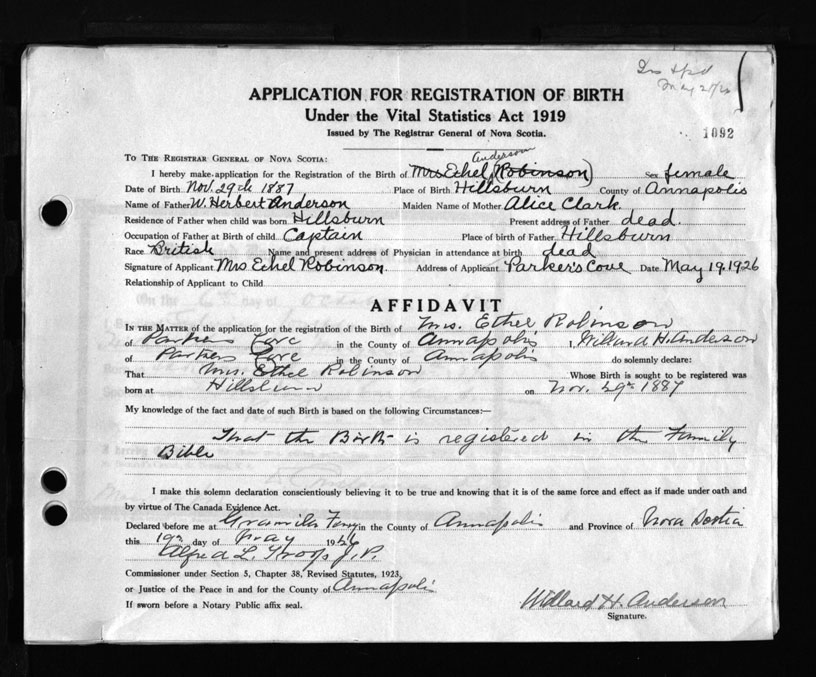 May 21/26
APPLICATION FOR REGISTRATION OF BIRTH
Under the Vital Statistics Act 1919
Issued by The Registrar General of Nova Scotia.
1092
TO THE REGISTRAR GENERAL OF NOVA SCOTIA:
Anderson
I hereby make application for the Registration of the Birth of Mrs Ethel (Robinson) Sex female
Date of Birth Nov. 29th 1887 Place of Birth Hillsburn County of Annapolis
Name of Father W. Herbert Anderson Maiden Name of Mother Alice Clark.
Residence of Father when child was born Hillsburn Present address of Father dead.
Occupation of Father at Birth of child Captain Place of birth of Father Hillsburn
Race British Name and present address of Physician in attendance at birth dead
Signature of Applicant Mrs Ethel Robinson. Address of Applicant Parker's Cove Date May 19, 1926
Relationship of Applicant to Child
AFFIDAVIT
IN THE MATTER of the application for the registration of the Birth of Mrs. Ethel Robinson
of Parkers Cove in the County of Annapolis I, Willard H. Anderson
of Parkers Cove in the County of Annapolis do solemnly declare:
That Mrs. Ethel Robinson Whose Birth is sought to be registered was
born at Hillsburn on Nov. 29th 1887
My knowledge of the fact and date of such Birth is based on the following Circumstances:—
That the Birth is registered in the Family
Bible
I make this solemn declaration conscientiously believing it to be true and knowing that it is of the same force and effect as if made under oath and
by virtue of The Canada Evidence Act.
Declared before me at Granville Ferry in the County of Annapolis and Province of Nova Scotia
this 19th day of May 1926
Alfred L. Troop J.P.
Commissioner under Section 5, Chapter 38, Revised Statutes, 1923,
or Justice of the Peace in and for the County of Annapolis
If sworn before a Notary Public affix seal.
Willard H. Anderson
Signature.